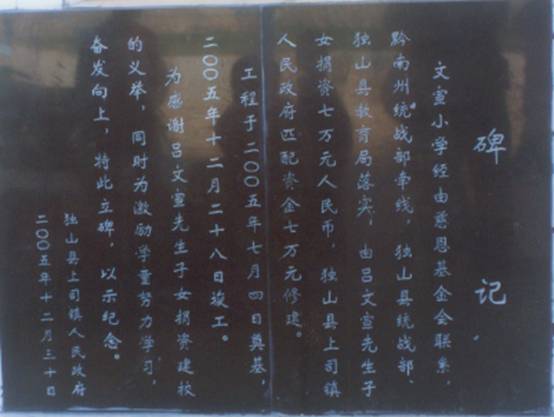 碑记
文宣小学经由慈恩基金会联系，
黔南州统战部牵线，独山县统战部、
独山县教育局落实，由吕文宣先生子
女捐资七万元人民币，独山县上司镇
人民政府匹配资金七万元修建。
工程于二00五年七月四日奠基，
二00五年十二月二十八日竣工。
为感谢吕文宣先生子女捐资建校
的义举，同时为激励学童努力学习，
奋发向上，特此立碑，以示纪念。
独山县上司镇人民政府
二00五年十二月三十日